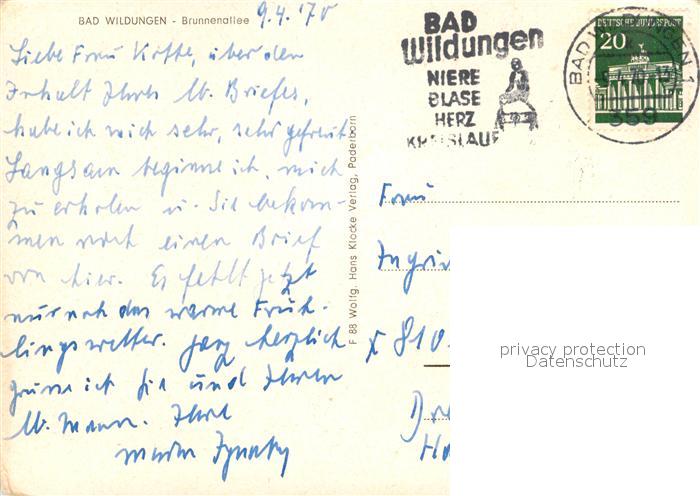 BAD WILDUNGEN - Brunnenallee
9.4.170
Liebe Frau Kotte, über den
Inhalt Ihres lb. Briefes,
habe ich mich sehr, sehr gefreut
Langsam beginne ich, mich
zu erholen u. Sie bekom-
men noch einen Brief
von hier. Es fehlt jetzt
nur noch das warme Früh-
lingswetter. Ganz herzlich
grüsse ich Sie und Ihren
lb. Mann. Ihre
F 88 Wolfg. Hans Klocke Verlag, Paderborn
BAD
Wildungen
NIERE
BLASE
HERZ
KREISLAUF
DEUTSCHE BUNDESPOST
20
BAD WILDUNGEN 1
359
Frau
Ingrid
x 810
privacy protection
Datenschutz